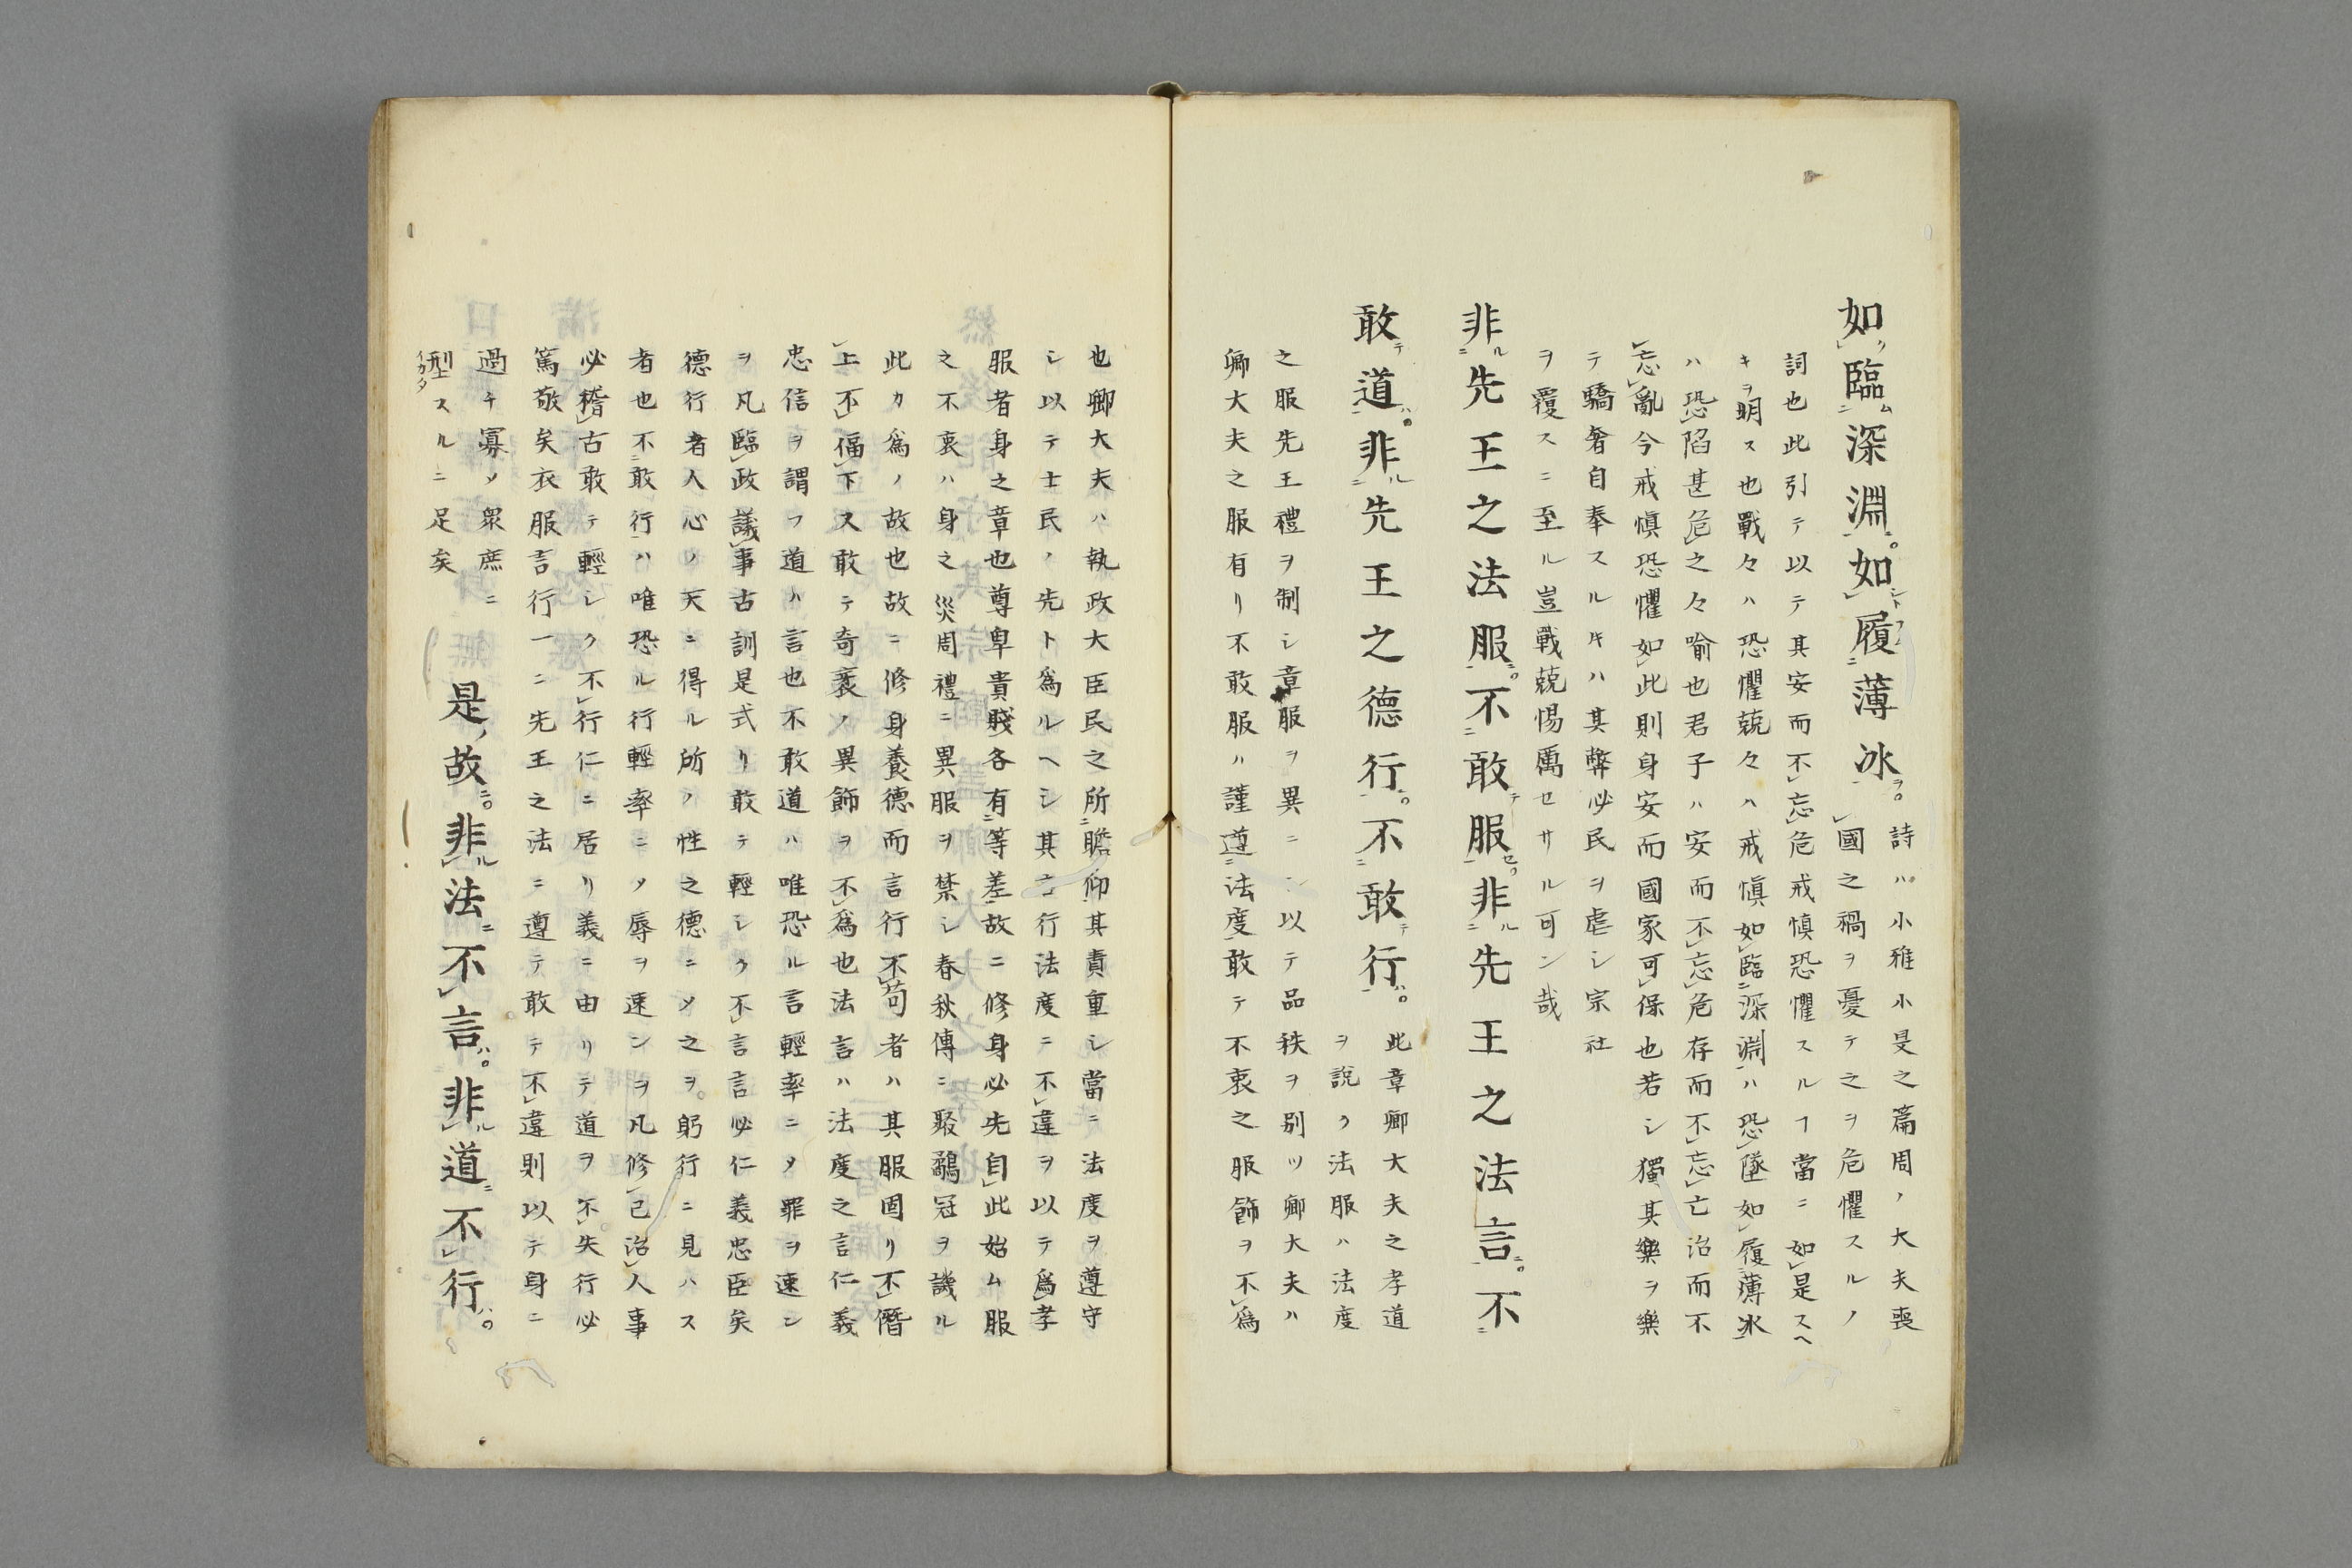 如臨深淵如履薄冰詩ハ小雅小旻之篇周ノ大夫喪
國之禍ヲ憂テ之ヲ危懼スルノ
詞也此引テ以テ其安而不忘危戒慎恐懼スルヿ當ニ如是スヘ
キヲ明ス也戰々ハ恐懼兢々ハ戒慎如臨深淵ハ恐墜如履薄冰
ハ恐陷甚危之々喻也君子ハ安而不忘危存而不忘亡治而不
忘亂今戒慎恐懼如此則身安而國家可保也若シ獨其樂ヲ樂
テ驕奢自奉スル㐧ハ其弊必民ヲ虐シ宗社
ヲ覆スニ至ル豈戰兢惕厲セサル可ン哉
非先王之法服不敢服非先王之法言不
敢道非先王之德行不敢行此章卿大夫之孝道
ヲ說ク法服ハ法度
之服先王禮ヲ制シ章服ヲ異ニシ以テ品秩ヲ別ツ卿大夫ハ
卿大夫之服有リ不敢服ハ謹遵法度敢テ不衷之服飾ヲ不爲
也卿大夫ハ執政大臣民之所瞻仰其責重シ當ニ法度ヲ遵守
シ以テ士民ノ先ト爲ルヘシ其言行法度ニ不違ヲ以テ爲孝
服者身之章也尊卑貴賤各有等差故ニ修身必先自此始ム服
之不衷ハ身之災周禮ニ異服ヲ禁シ春秋傳ニ聚鷸冠ヲ譏ル
此カ爲ノ故也故ニ修身養德而言行不苟者ハ其服固リ不僭
上不偪下ス敢テ奇袤ノ異飾ヲ不爲也法言ハ法度之言仁義
忠信ヲ謂フ道ハ言也不敢道ハ唯恐ル言輕率ニメ罪ヲ速ン
ヲ凡臨政議事古訓是式リ敢テ輕シク不言言必仁義忠臣矣
德行者人心ノ天ニ得ル所ノ性之德ニメ之ヲ躬行ニ見ハス
者也不敢行ハ唯恐ル行輕率ニメ辱ヲ速ンヲ凡修己治人事
必稽古敢テ輕シク不行仁ニ居リ義ニ由リテ道ヲ不失行必
篤敬矣衣服言行一ニ先王之法ニ遵テ敢テ不違則以テ身ニ
過チ寡メ衆庶ニ
型スルニ足矣是故非法不言非道不行